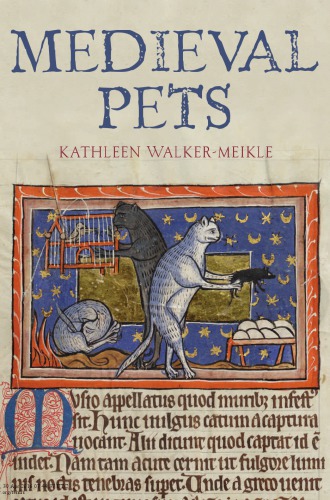 MEDIEVAL
PETS
KATHLEEN WALKER-MEIKLE
Musio appellatus quod murib; infest
sit. Hunc uulgus catum a captura
uocant. Alii dicunt quod captat id ē
uidet. Nam tam acute cernit ut fulgore lumi
nis noctis tenebras super. Unde a greco uenit